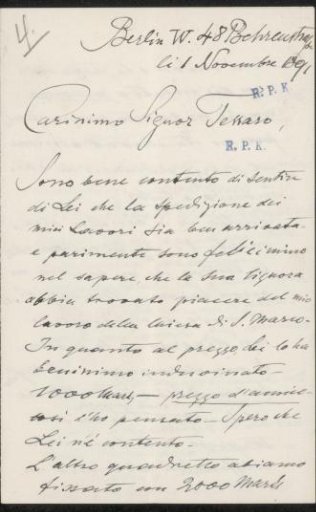 4.
Berlin W. 48 Behrenstraße
li 1 Novembre 1891
R. P. K.
Carinimo Signor Tessaro,
R. P. K.
Sono bene contento di sentire
di Lei che la spedizione dei
miei Lavori sia ben arrivata
e parimente sono felicinimo
nel sapere, che la Sua Signora
abbia trovato piacere del mio
lavoro della chiesa di S. Marco-
In quanto al prezzo, Lei lo ha
beninimo indovinato-
1000 Mark,- prezzo d'amico-
così l'ho pensato- Spero che
Lei n'è contento-
L'altro quadretto abiamo
fissato con 2000 Mark